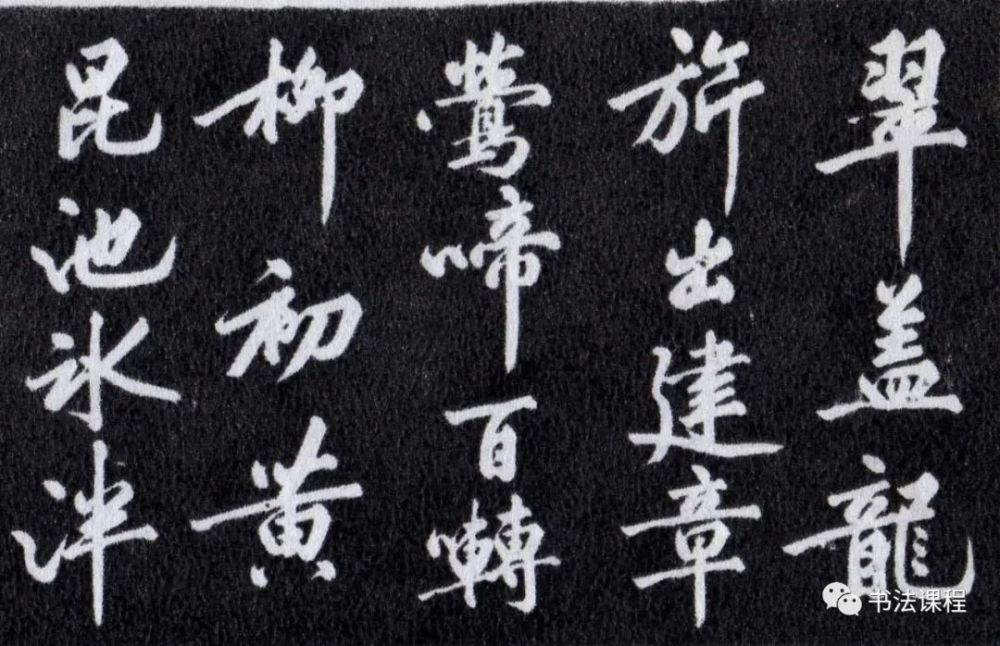 翠盖龍
旂出建章
鶯啼百囀
柳初黄
昆池氷泮
书法课程